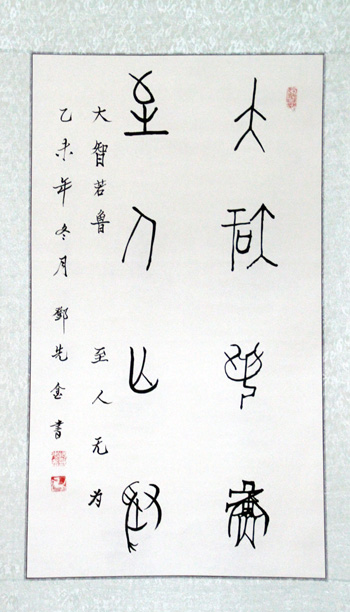 大智若魯
至人亡為
大智若魯 至人无为
乙未年冬月 鄧先金書